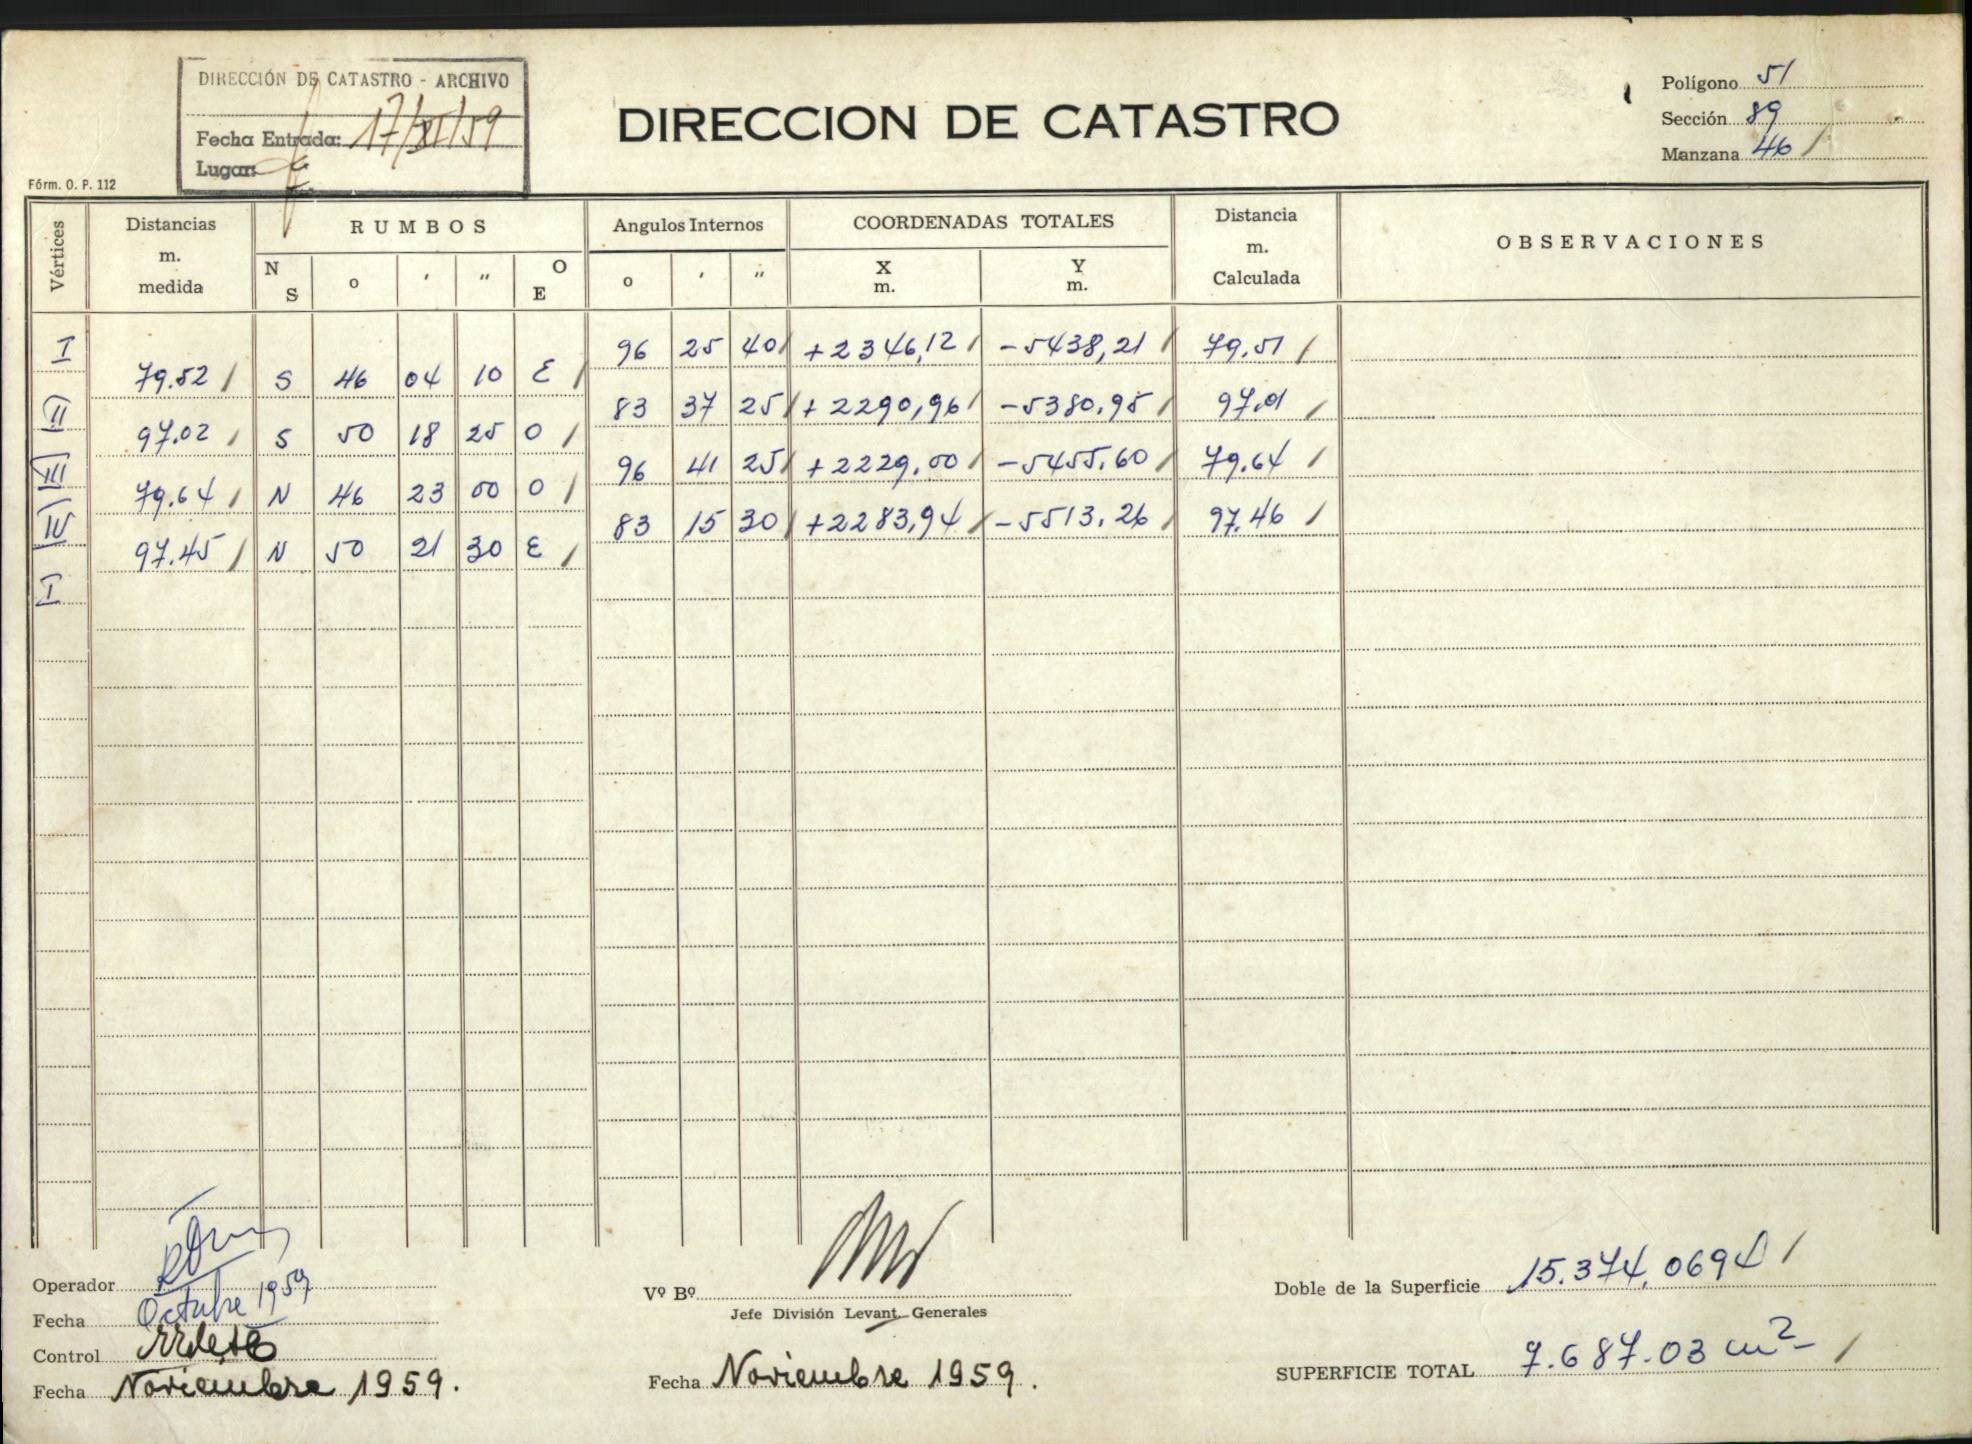 DIRECCIÓN DE CATASTRO - ARCHIVO
Fecha Entrada: 17/XI/59
Lugar:
Fórm. O. P. 112
DIRECCION DE CATASTRO
Polígono 51
Sección 89
Manzana 46 /
Vértices
Distancias m. medida
RUMBOS
N S
o
'
"
O E
Angulos Internos
o
'
"
COORDENADAS TOTALES
X m.
Y m.
Distancia m. Calculada
OBSERVACIONES
I 96 25 40 / +2346,12 / -5438,21 / 79.51 /
79.52 / S 46 04 10 E /
II 83 37 25 / +2290,96 / -5380.95 / 97.01 /
97.02 / S 50 18 25 O /
III 96 41 25 / +2229,00 / -5455.60 / 79.64 /
79.64 / N 46 23 00 O /
IV 83 15 30 / +2283,94 / -5513.26 / 97.46 /
97.45 / N 50 21 30 E /
I
Operador
Fecha Octubre 1959
Control
Fecha Noviembre 1959.
Vº Bº
Jefe División Levant. Generales
Fecha Noviembre 1959.
Doble de la Superficie 15.374.0694 /
SUPERFICIE TOTAL 7.687.03 m² /